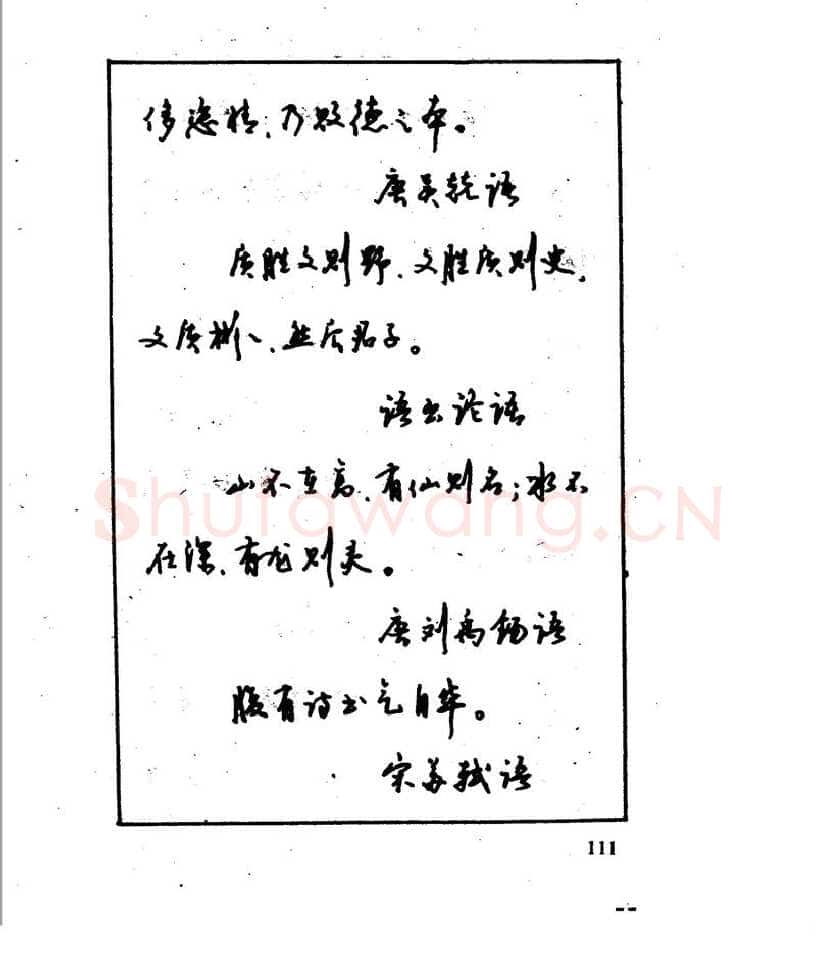 侈恣情，乃败德之本。
唐吴兢语
质胜文则野、文胜质则史，
文质彬々、然后君子。
语出论语
山不在高、有仙则名；水不
在深、有龙则灵。
唐刘禹锡语
腹有诗书气自华。
宋苏轼语
111
Shufawang.CN